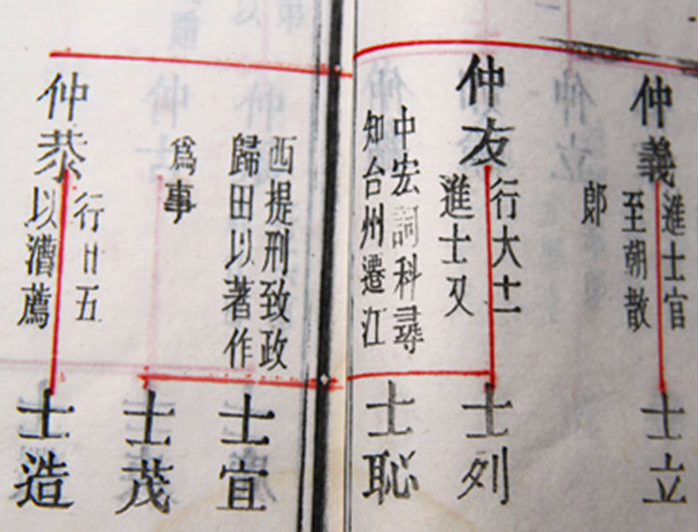 仲義
進士官
至朝散
郎
仲友
行大十一
進士又
中宏詞科尋
知台州遷江
西提刑致政
歸田以著作
為事
仲恭
行廿五
以漕薦
士立
士列
士恥
士宜
士茂
士造